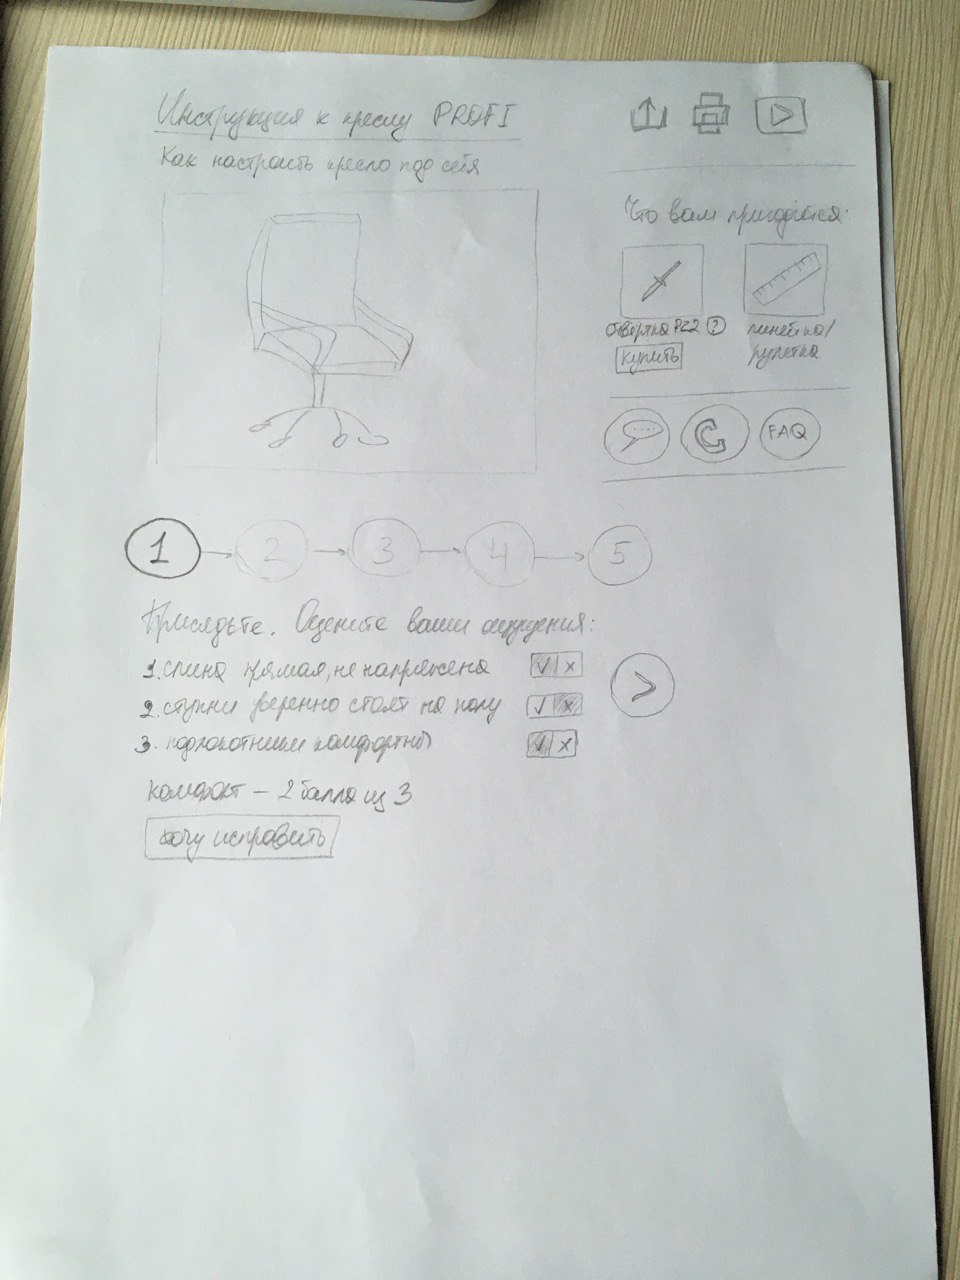 Инструкция к креслу PROFI
Как настроить кресло под себя
Что вам пригодится:
отвертка PZ2 ?
купить
линейка/
рулетка
FAQ
1 2 3 4 5
Присядьте. Оцените ваши ощущения:
1. спина прямая, не напряжена
2. ступни уверенно стоят на полу
3. подлокотники комфортны
комфорт – 2 балла из 3
хочу исправить